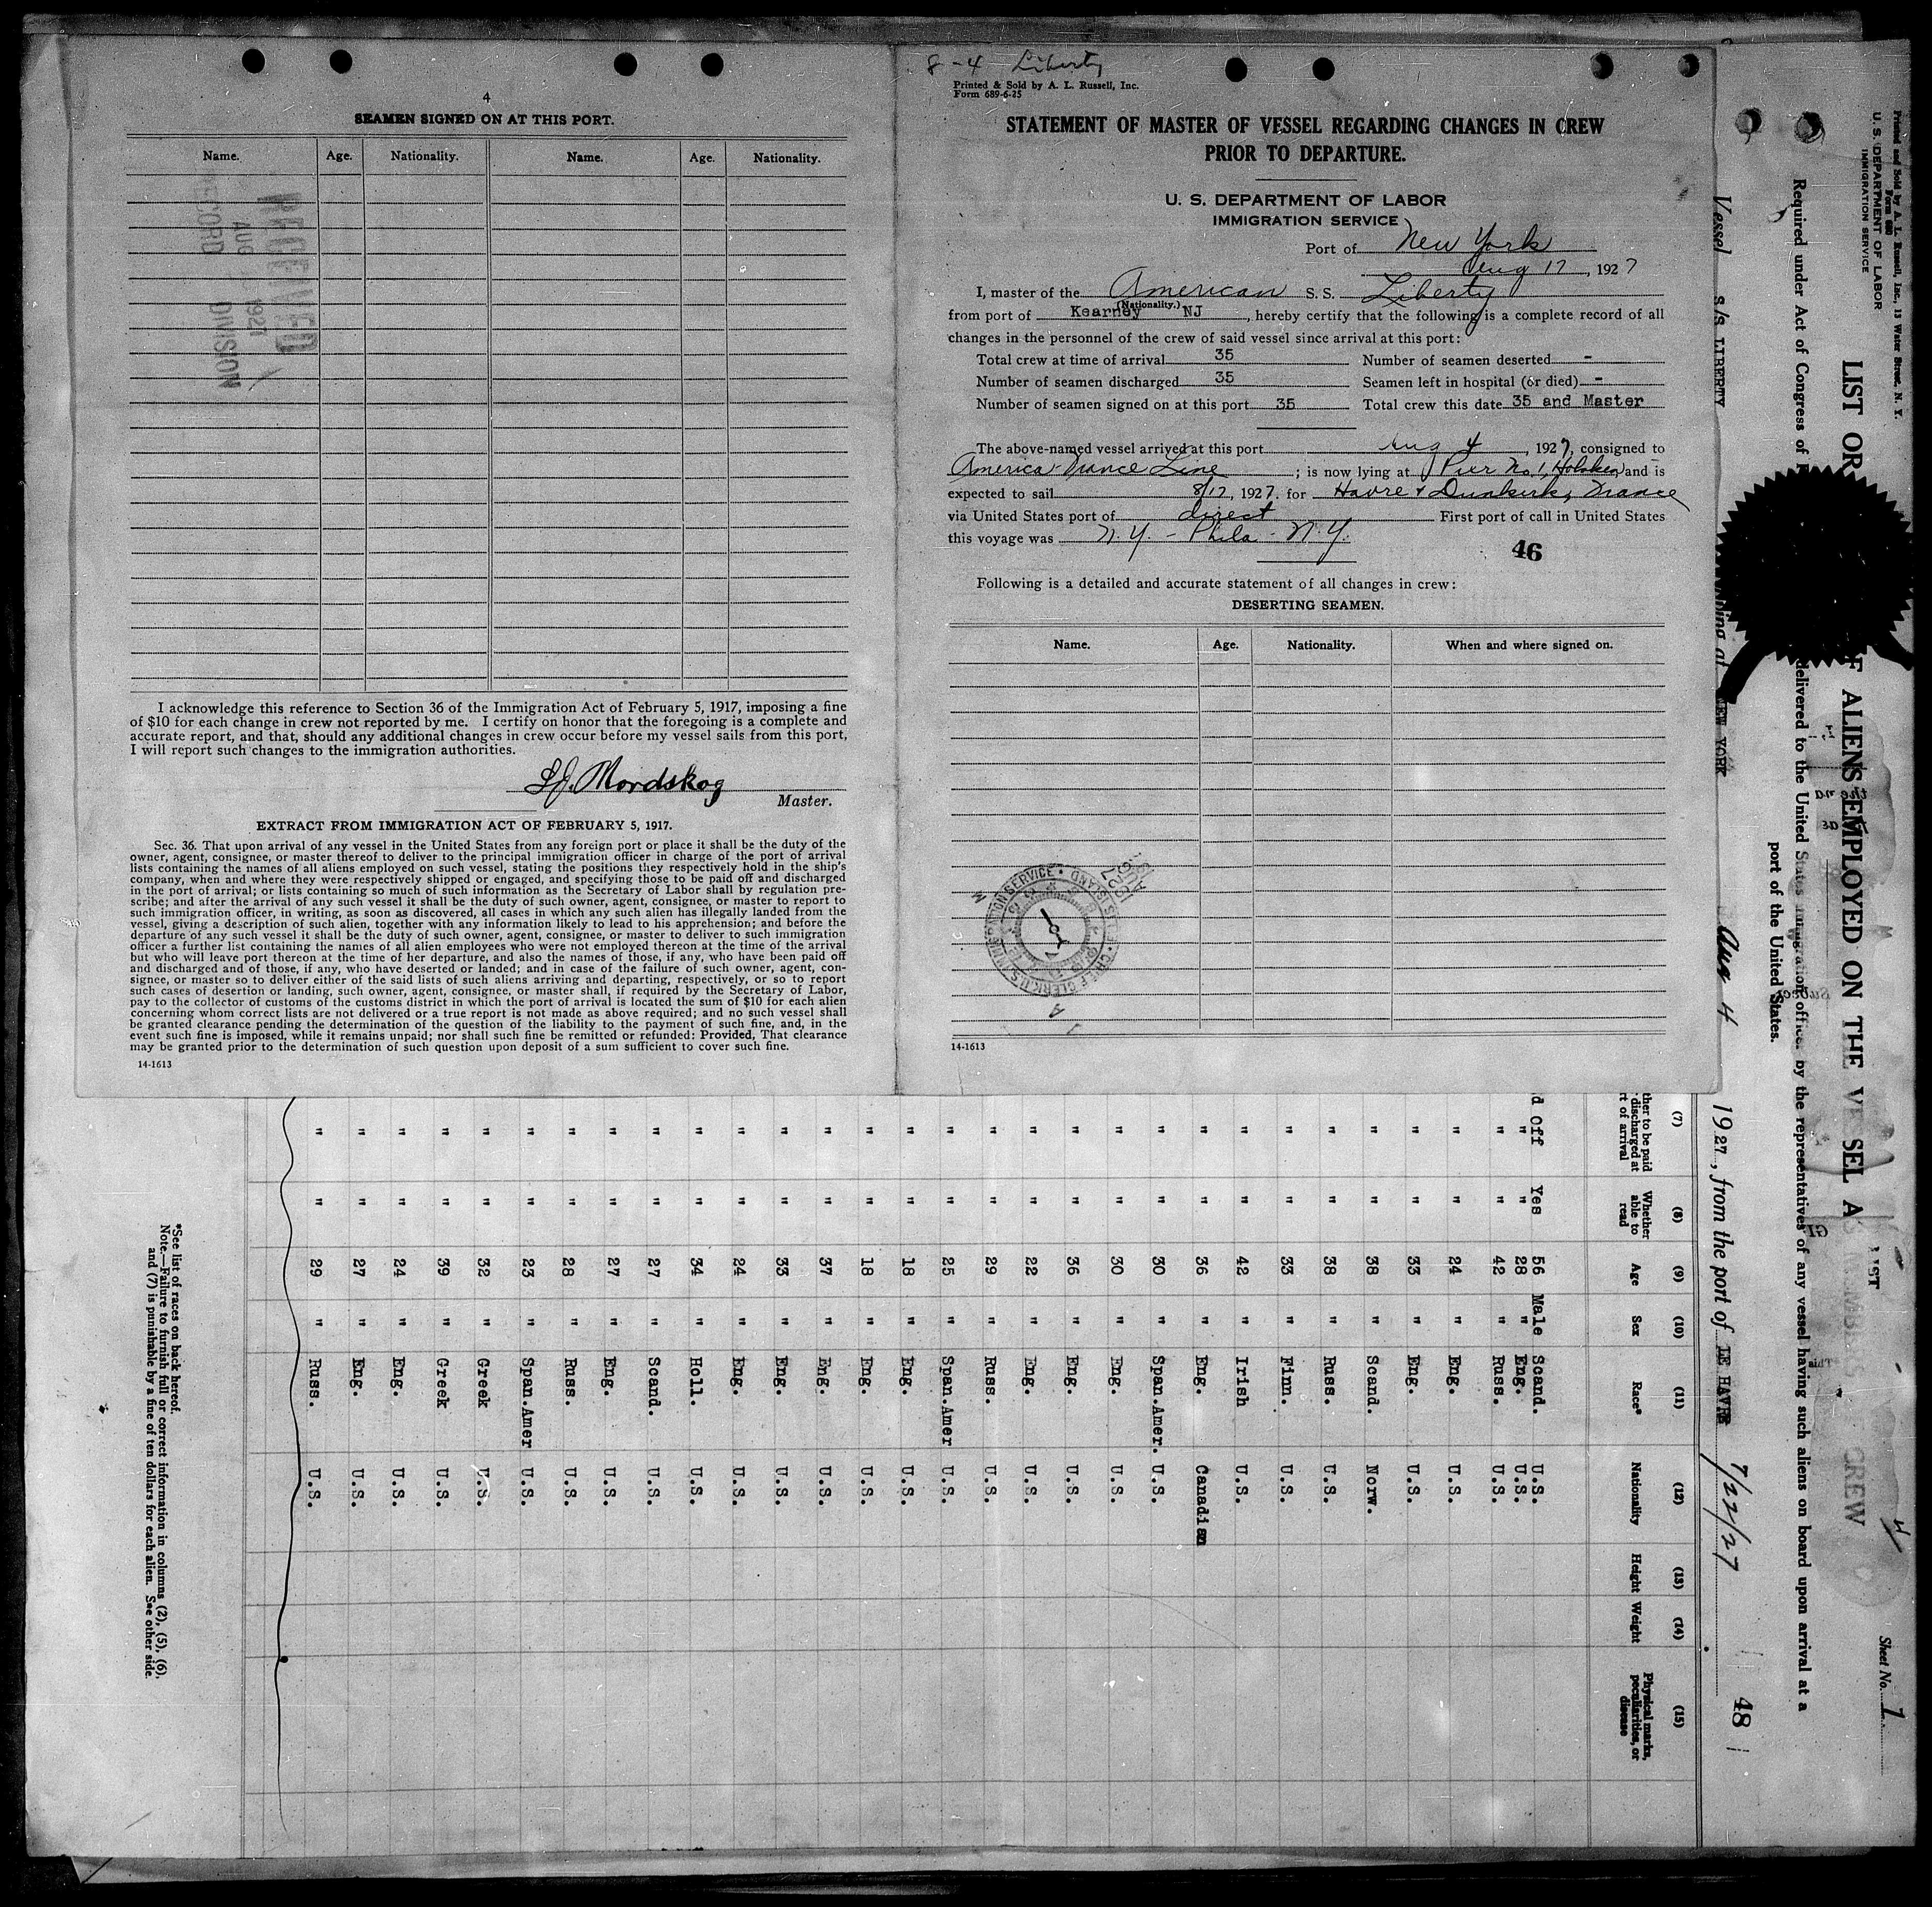 4
SEAMEN SIGNED ON AT THIS PORT.
Name. Age. Nationality. Name. Age. Nationality.
RECEIVED
AUG 1927
RECORD DIVISION
I acknowledge this reference to Section 36 of the Immigration Act of February 5, 1917, imposing a fine
of $10 for each change in crew not reported by me. I certify on honor that the foregoing is a complete and
accurate report, and that, should any additional changes in crew occur before my vessel sails from this port,
I will report such changes to the immigration authorities.
Master.
EXTRACT FROM IMMIGRATION ACT OF FEBRUARY 5, 1917.
Sec. 36. That upon arrival of any vessel in the United States from any foreign port or place it shall be the duty of the
owner, agent, consignee, or master thereof to deliver to the principal immigration officer in charge of the port of arrival
lists containing the names of all aliens employed on such vessel, stating the positions they respectively hold in the ship's
company, when and where they were respectively shipped or engaged, and specifying those to be paid off and discharged
in the port of arrival; or lists containing so much of such information as the Secretary of Labor shall by regulation pre-
scribe; and after the arrival of any such vessel it shall be the duty of such owner, agent, consignee, or master to report to
such immigration officer, in writing, as soon as discovered, all cases in which any such alien has illegally landed from the
vessel, giving a description of such alien, together with any information likely to lead to his apprehension; and before the
departure of any such vessel it shall be the duty of such owner, agent, consignee, or master to deliver to such immigration
officer a further list containing the names of all alien employees who were not employed thereon at the time of the arrival
but who will leave port thereon at the time of her departure, and also the names of those, if any, who have been paid off
and discharged and of those, if any, who have deserted or landed; and in case of the failure of such owner, agent, con-
signee, or master so to deliver either of the said lists of such aliens arriving and departing, respectively, or so to report
such cases of desertion or landing, such owner, agent, consignee, or master shall, if required by the Secretary of Labor,
pay to the collector of customs of the customs district in which the port of arrival is located the sum of $10 for each alien
concerning whom correct lists are not delivered or a true report is not made as above required; and no such vessel shall
be granted clearance pending the determination of the question of the liability to the payment of such fine, and, in the
event such fine is imposed, while it remains unpaid; nor shall such fine be remitted or refunded: Provided, That clearance
may be granted prior to the determination of such question upon deposit of a sum sufficient to cover such fine.
14-1613
8-4 Liberty
Printed & Sold by A. L. Russell, Inc.
Form 689-6-25
STATEMENT OF MASTER OF VESSEL REGARDING CHANGES IN CREW
PRIOR TO DEPARTURE.
U. S. DEPARTMENT OF LABOR
IMMIGRATION SERVICE
Port of New York
Aug 17, 1927
I, master of the American S. S. Liberty
(Nationality.)
from port of Kearney NJ, hereby certify that the following is a complete record of all
changes in the personnel of the crew of said vessel since arrival at this port:
Total crew at time of arrival 35 Number of seamen deserted -
Number of seamen discharged 35 Seamen left in hospital (or died) -
Number of seamen signed on at this port 35 Total crew this date 35 and Master
The above-named vessel arrived at this port Aug 4, 1927, consigned to
America-France Line; is now lying at Pier No. 1, Hoboken and is
expected to sail 8/17, 1927. for Havre & Dunkerk, France
via United States port of direct First port of call in United States
this voyage was N.Y. - Phila - N.Y.
46
Following is a detailed and accurate statement of all changes in crew:
DESERTING SEAMEN.
Name. Age. Nationality. When and where signed on.
14-1613
Printed and Sold by A. L. Russell, Inc., 13 Water Street, N. Y.
Form 680
U. S. DEPARTMENT OF LABOR
IMMIGRATION SERVICE
Sheet No. 1
LIST OR F ALIENS EMPLOYED ON THE VESSEL AS MEMBERS CREW
Required under Act of Congress of delivered to the United States immigration officer by the representatives of any vessel having such aliens on board upon arrival at a
port of the United States.
Vessel S/S LIBERTY at NEW YORK Aug 4 1927, from the port of LE HAVRE 7/22/27
48
(7) (8) (9) (10) (11) (12) (13) (14) (15)
ther to be paid discharged at rt of arrival Whether able to read Age Sex Race* Nationality Height Weight Physical marks, peculiarities, or disease
d Off Yes 56 Male Scand. U.S.
" " 28 " Eng. U.S.
" " 42 " Russ. U.S.
" " 24 " Eng. U.S.
" " 33 " Eng. U.S.
" " 38 " Scand. Norw.
" " 38 " Russ. U.S.
" " 33 " Finn. U.S.
" " 42 " Irish U.S.
" " 36 " Eng. Canadian
" " 30 " Span.Amer. U.S.
" " 30 " Eng. U.S.
" " 36 " Eng. U.S.
" " 22 " Eng. U.S.
" " 29 " Russ. U.S.
" " 25 " Span.Amer U.S.
" " 18 " Eng. U.S.
" " 18 " Eng. U.S.
" " 37 " Eng. U.S.
" " 33 " Eng. U.S.
" " 24 " Eng. U.S.
" " 34 " Holl. U.S.
" " 27 " Scand. U.S.
" " 27 " Eng. U.S.
" " 28 " Russ. U.S.
" " 23 " Span.Amer U.S.
" " 32 " Greek U.S.
" " 39 " Greek U.S.
" " 24 " Eng. U.S.
" " 27 " Eng. U.S.
" " 29 " Russ. U.S.
*See list of races on back hereof.
Note.—Failure to furnish full or correct information in columns (2), (5), (6),
and (7) is punishable by a fine of ten dollars for each alien. See other side.